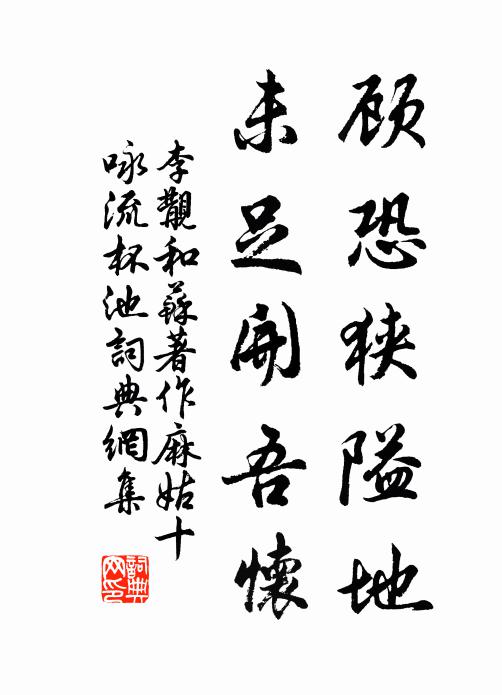 顾恐狭隘地
未足開吾懷
李觀和蘇著作麻姑十
咏流杯池詞典網集
詞典网印